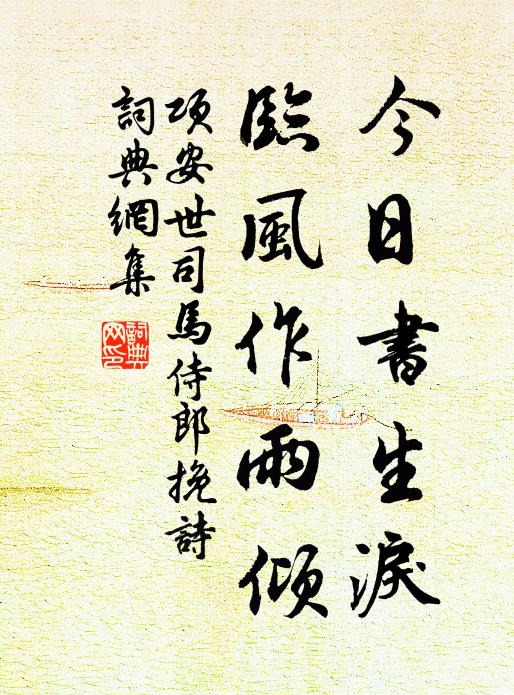 今日書生淚
臨風作雨傾
項安世司馬侍郎挽詩
詞典網集
詞典網印